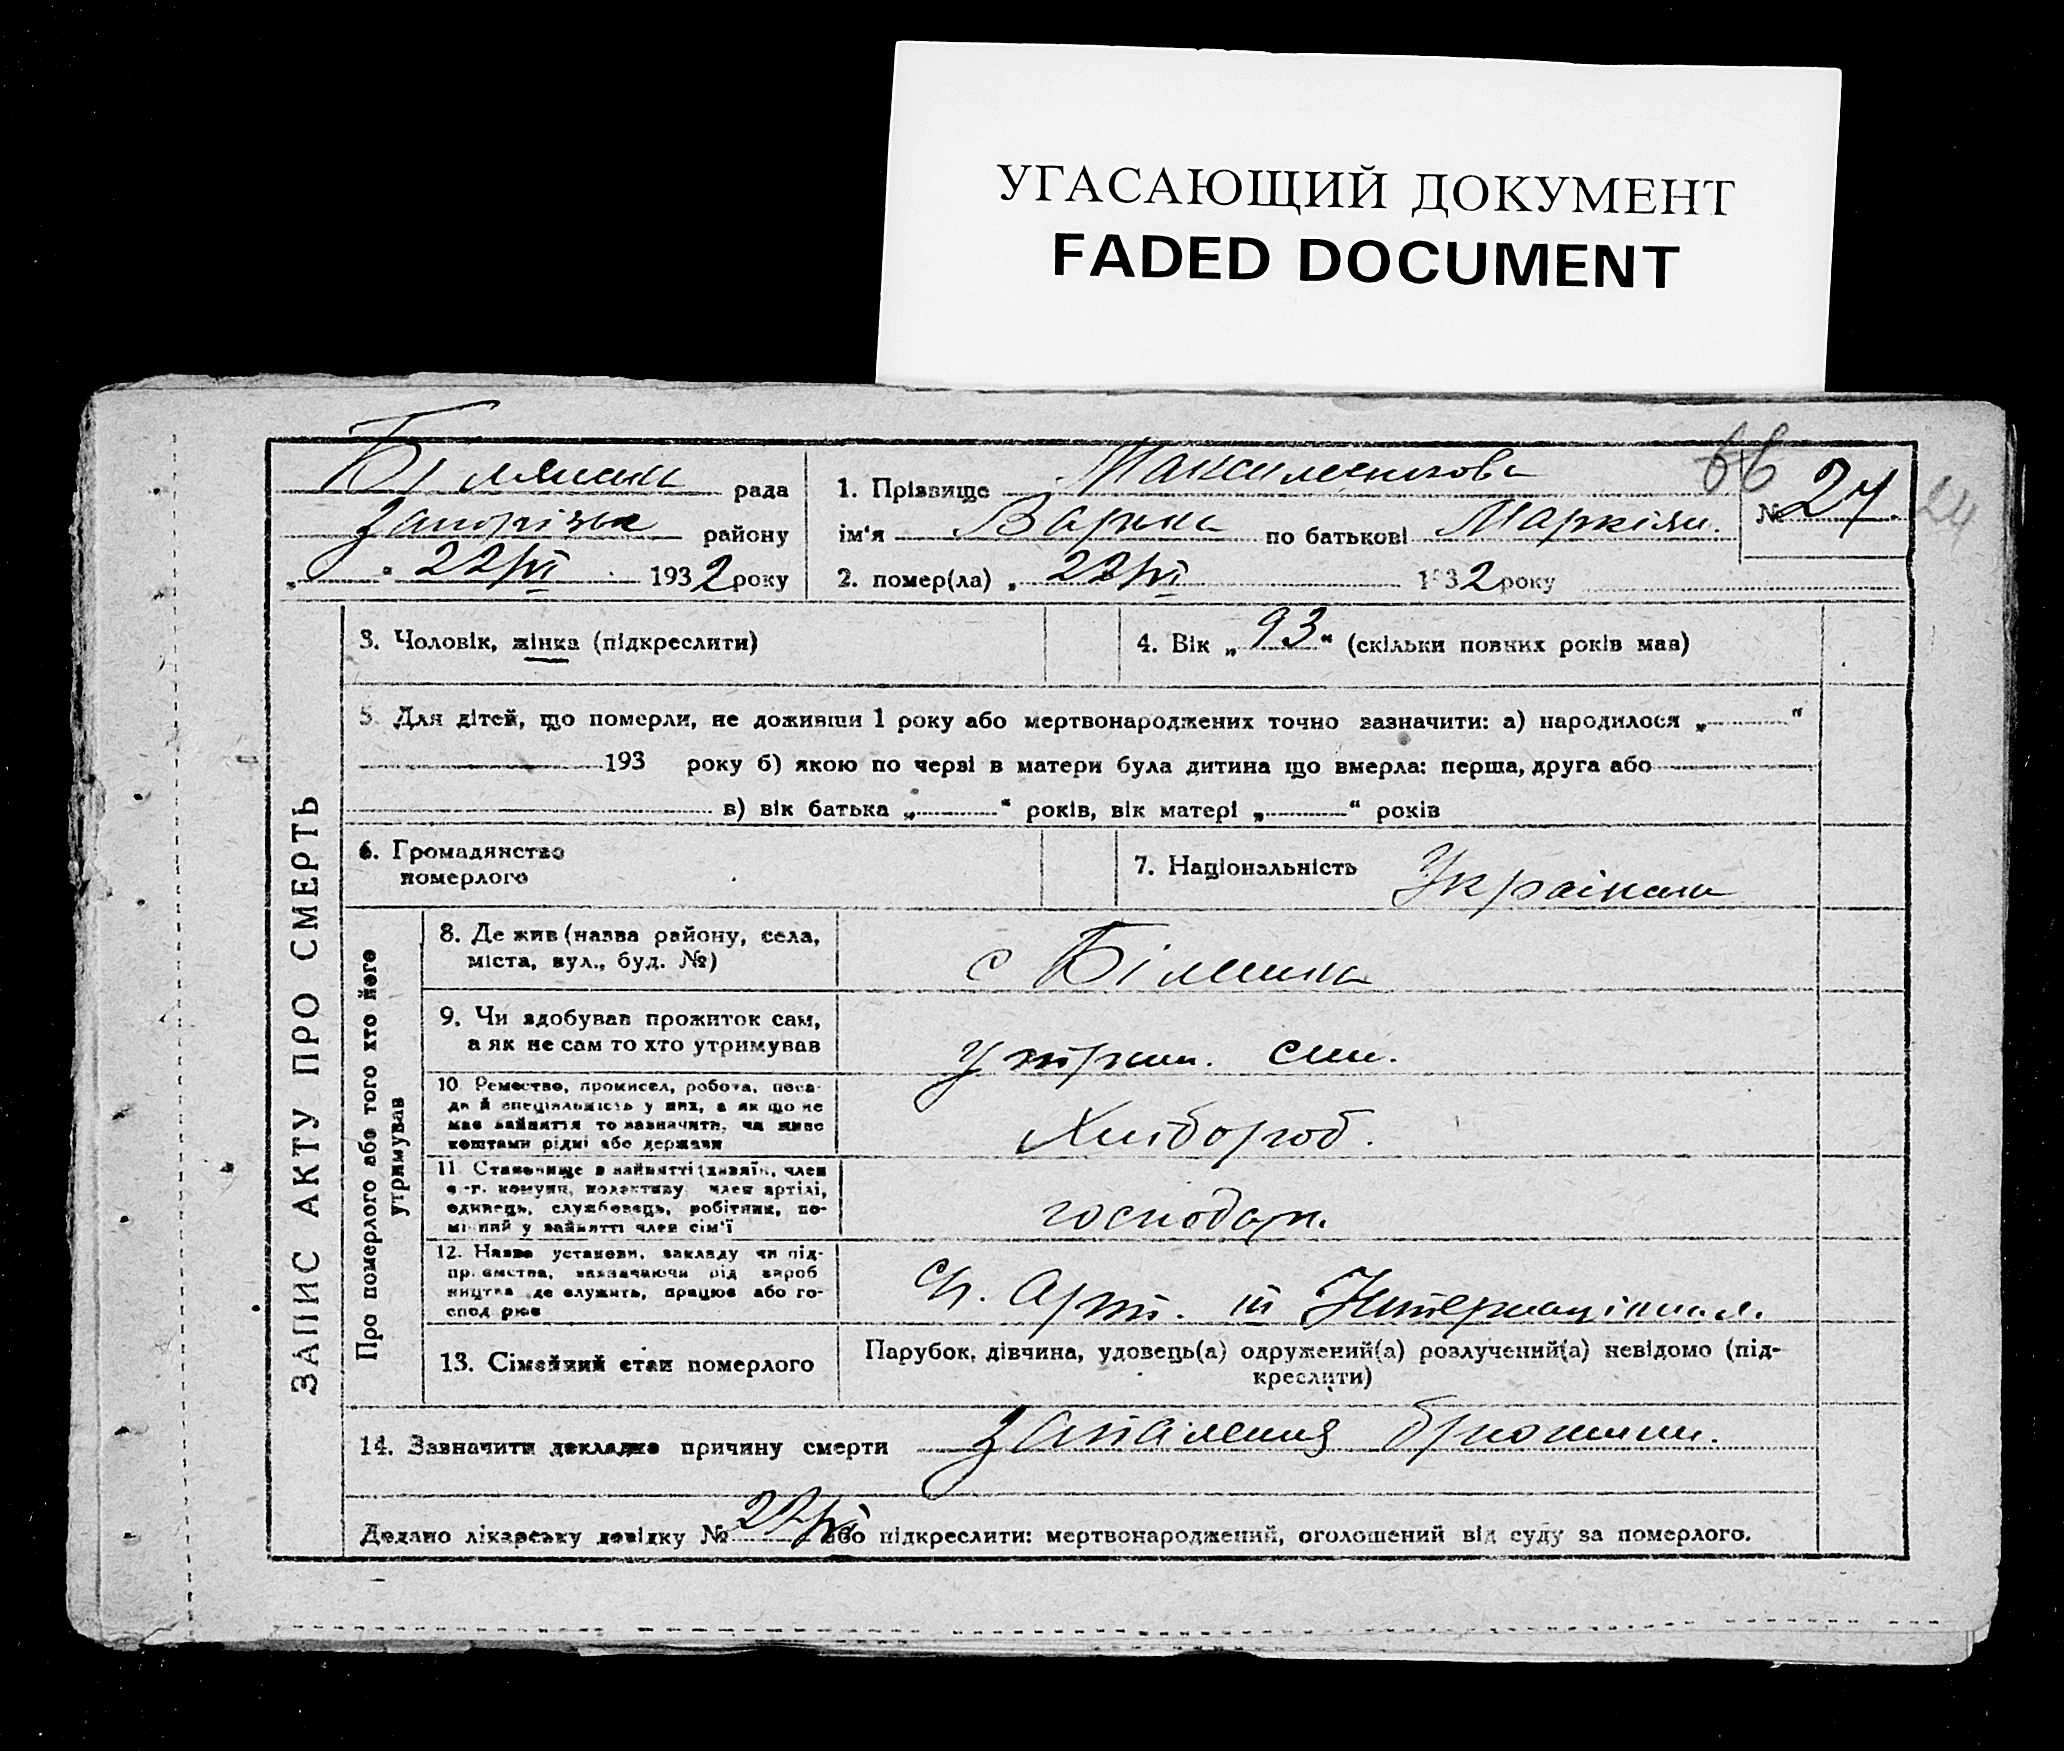 УГАСАЮЩИЙ ДОКУМЕНТ
FADED DOCUMENT
рада
Запорізьк району
„ “ 22/VI 1932 року
1. Прізвище
66
ім‘я Варка по батькові Маркіян.
№ 24. 24
2. помер(ла) „ 22/VI 1932 року
ЗАПИС АКТУ ПРО СМЕРТЬ
3. Чоловік, жінка (підкреслити)
4. Вік „ 93 “ (скільки повних років мав)
5. Для дітей, що померли, не доживши 1 року або мертвонароджених точно зазначити: а) народилося „ “
193 року б) якою по черві в матери була дитина що вмерла: перша, друга або
в) вік батька „ “ років, вік матері „ “ років
6. Громадянство
померлого
7. Національність Українка
Про померлого або того хто його
утримував
8. Де жив (назва району, села,
міста, вул., буд. №)
с
9. Чи здобував прожиток сам,
а як не сам то хто утримував
утрим. син.
10. Ремество, промисел, робота, поса-
ди й спеціяльність у них, а як що не
має зайняття то зазначити, чи живе
коштами рідні або держави
Хлібороб.
11. Становище в зайнятті (хазяїн, член
с.-г. комуни, колективу, член артілі,
одинець, службовець, робітник, по-
мічний у зайнятті член сім‘ї
господар.
12. Назва установи, закладу чи під-
приємства, зазначаючи рід вироб
ництва де служить, працює або го-
спод рює
Арт. III Інтернаціонал.
13. Сімейний стан померлого
Парубок, дівчина, удовець(а) одружений(а) розлучений(а) невідомо (під-
креслити)
14. Зазначити докладно причину смерти Запалення
Додано лікарську довідку № 22/VI або підкреслити: мертвонароджений, оголошений від суду за померлого.